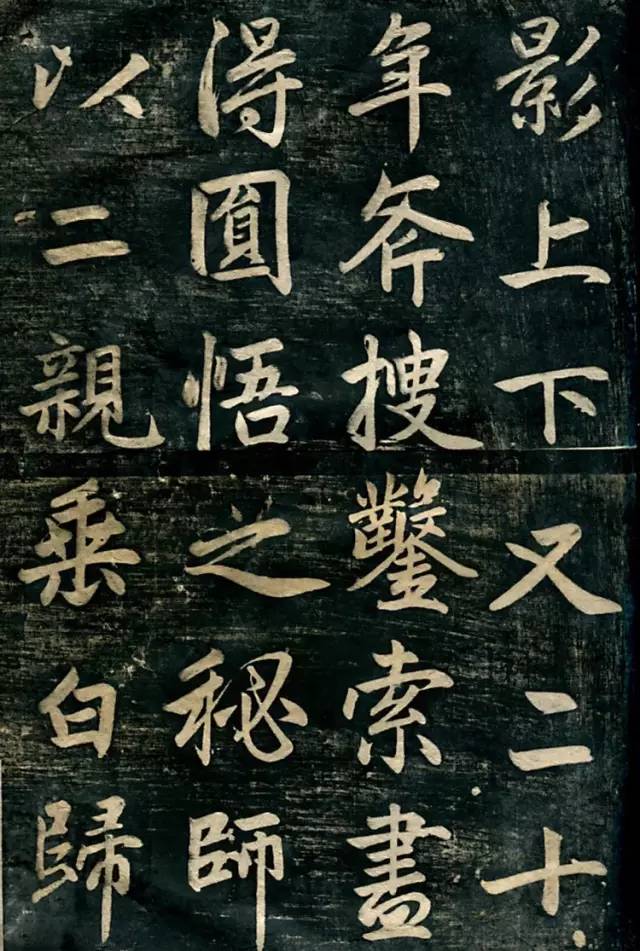 影上下又二十
年斧搜鑿索盡
得圓悟之秘師
以二親垂白歸